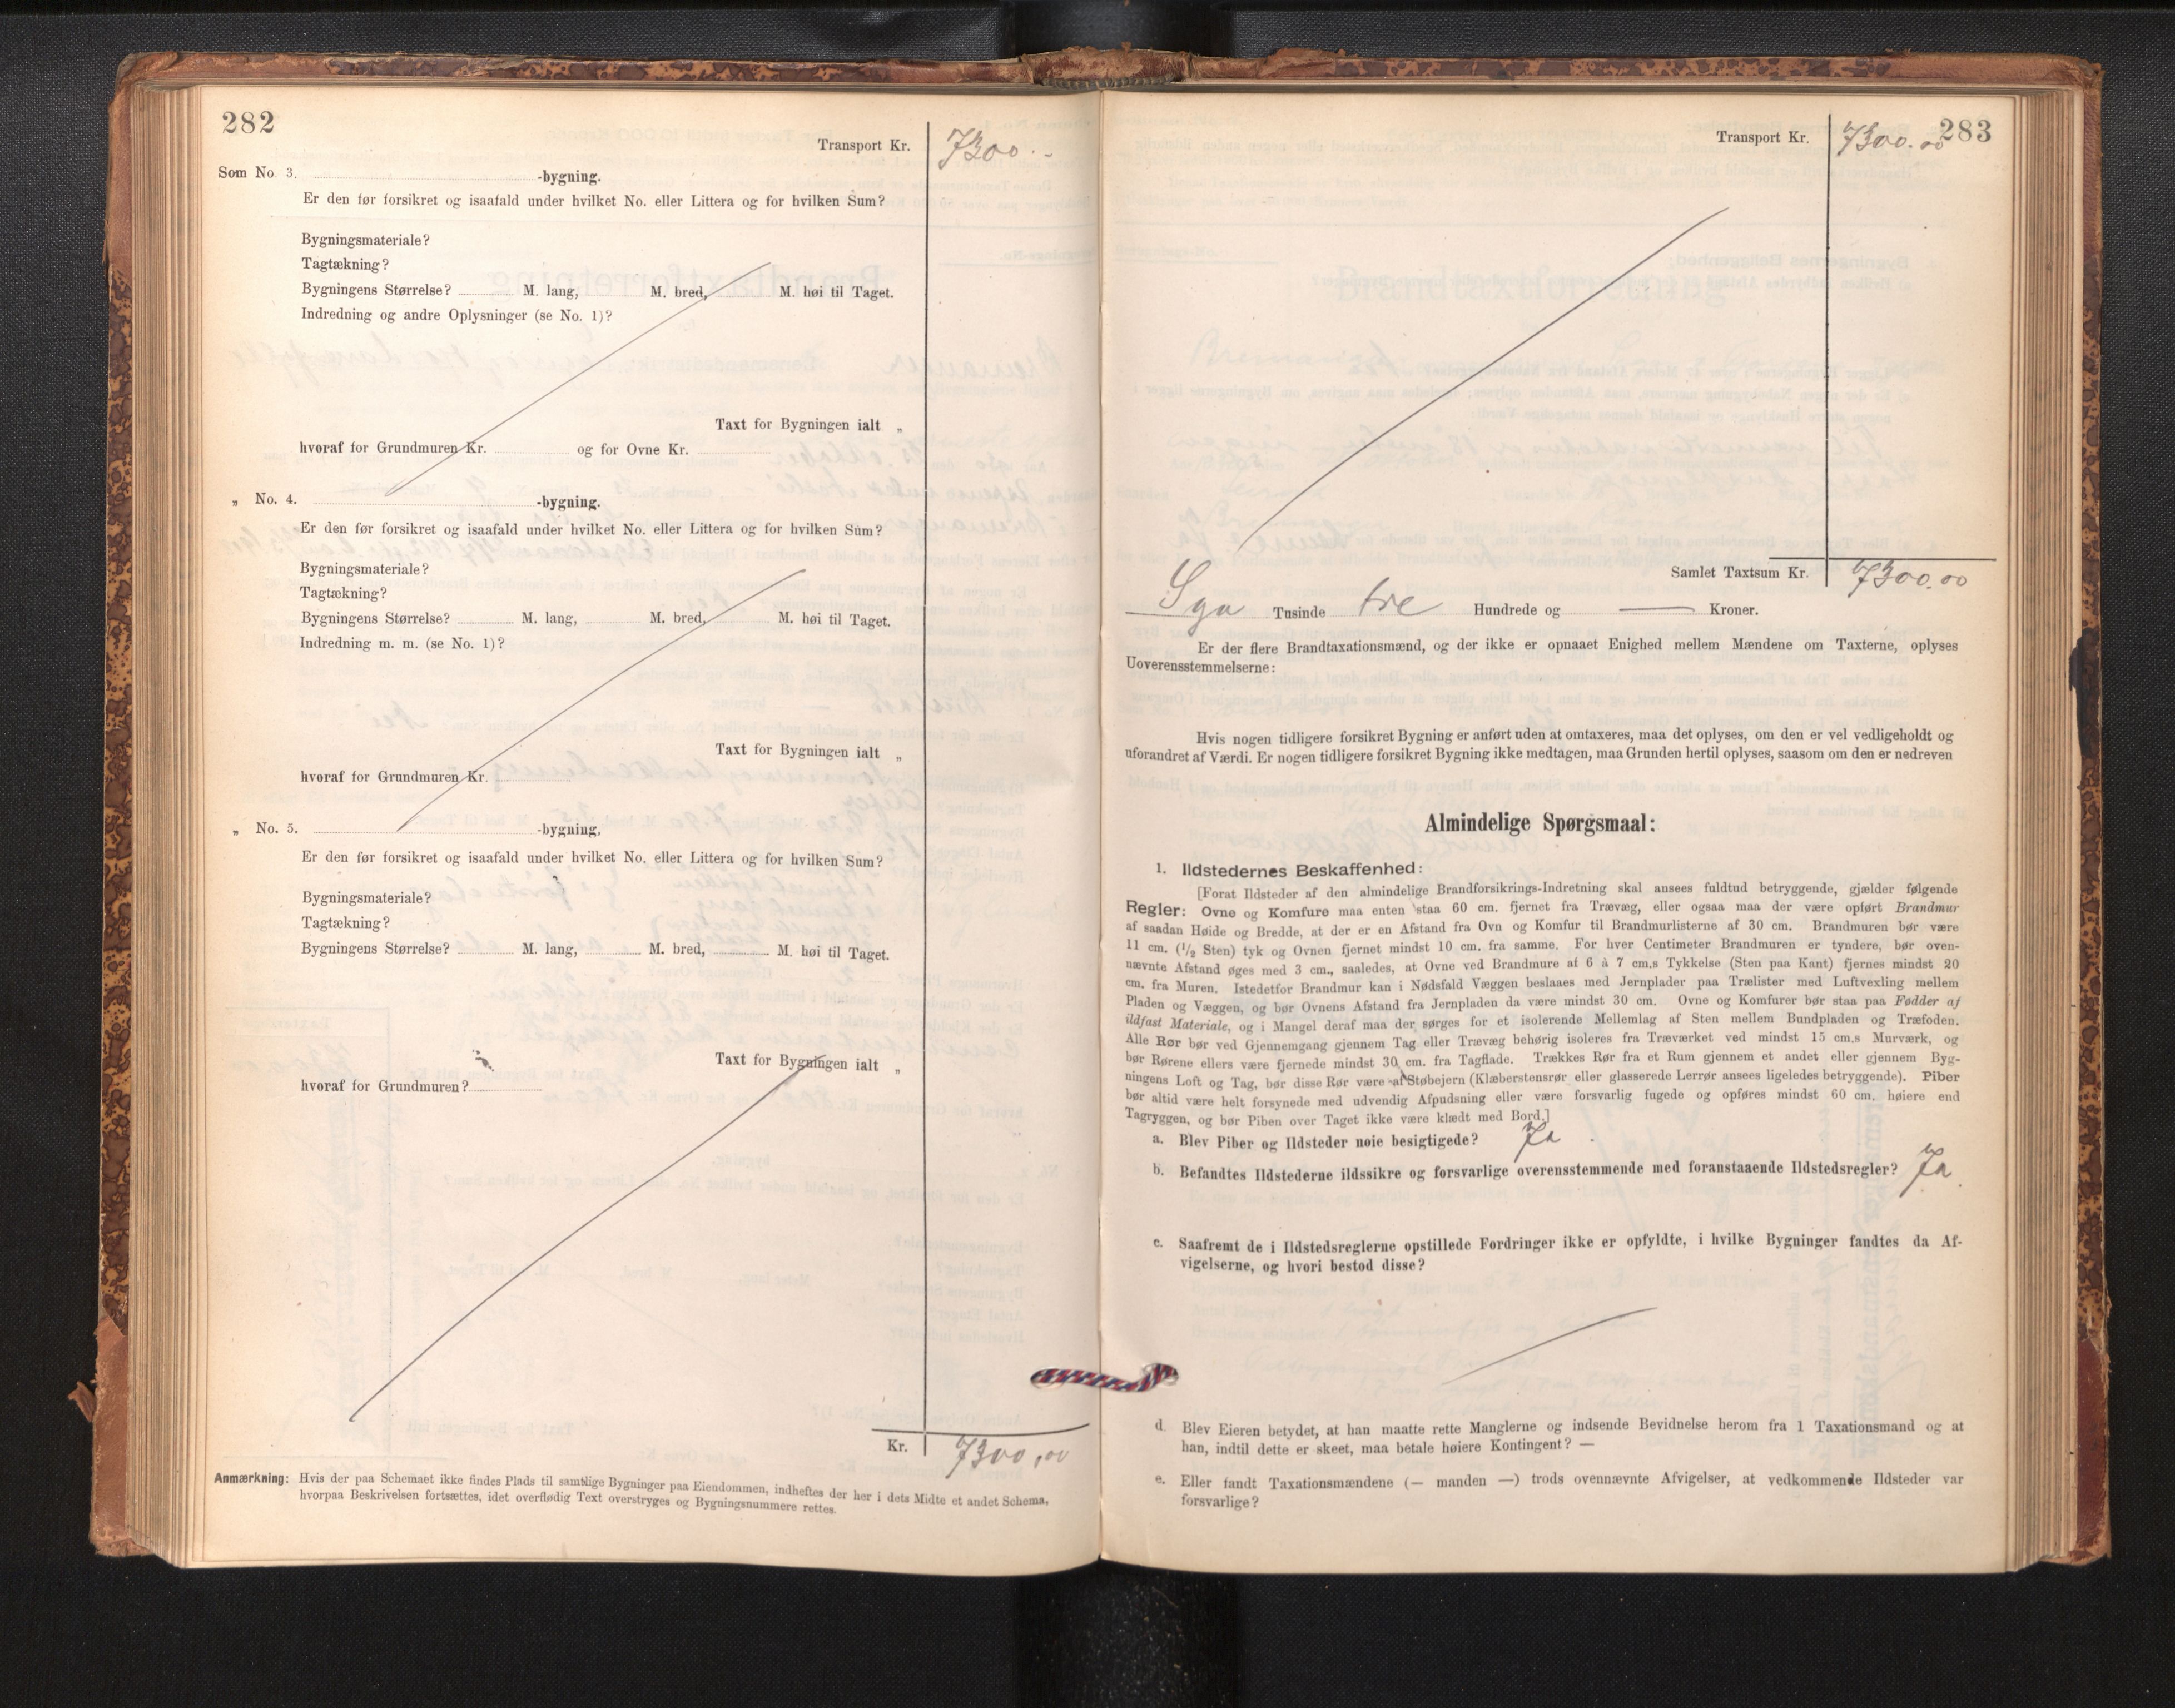 282
Transport Kr. 7300.-
Som No. 3. -bygning.
Er den før forsikret og isaafald under hvilket No. eller Littera og for hvilken Sum?
Bygningsmateriale?
Tagtækning?
Bygningens Størrelse? M. lang, M. bred, M. høi til Taget.
Indredning og andre Oplysninger (se No. 1)?
Taxt for Bygningen ialt „
hvoraf for Grundmuren Kr. og for Ovne Kr.
„ No. 4. -bygning.
Er den før forsikret og isaafald under hvilket No. eller Littera og for hvilken Sum?
Bygningsmateriale?
Tagtækning?
Bygningens Størrelse? M. lang, M. bred, M. høi til Taget.
Indredning m. m. (se No. 1)?
Taxt for Bygningen ialt „
hvoraf for Grundmuren Kr.
„ No. 5. -bygning,
Er den før forsikret og isaafald under hvilket No. eller Littera og for hvilken Sum?
Bygningsmateriale?
Tagtækning?
Bygningens Størrelse? M. lang, M. bred, M. høi til Taget.
Taxt for Bygningen ialt „
hvoraf for Grundmuren?
Kr. 7300,00
Anmærkning: Hvis der paa Schemaet ikke findes Plads til samtlige Bygninger paa Eiendommen, indheftes der her i dets Midte et andet Schema,
hvorpaa Beskrivelsen fortsættes, idet overflødig Text overstryges og Bygningsnummere rettes.
283
Transport Kr. 7300.00
Samlet Taxtsum Kr. 7300.00
Syv Tusinde tre Hundrede og — Kroner.
Er der flere Brandtaxationsmænd, og der ikke er opnaaet Enighed mellem Mændene om Taxterne, oplyses
Uoverensstemmelserne:
Hvis nogen tidligere forsikret Bygning er anført uden at omtaxeres, maa det oplyses, om den er vel vedligeholdt og
uforandret af Værdi. Er nogen tidligere forsikret Bygning ikke medtagen, maa Grunden hertil oplyses, saasom om den er nedreven
Almindelige Spørgsmaal:
1. Ildstedernes Beskaffenhed:
[Forat Ildsteder af den almindelige Brandforsikrings-Indretning skal ansees fuldtud betryggende, gjælder følgende
Regler: Ovne og Komfure maa enten staa 60 cm. fjernet fra Trævæg, eller ogsaa maa der være opført Brandmur
af saadan Høide og Bredde, at der er en Afstand fra Ovn og Komfur til Brandmurlisterne af 30 cm. Brandmuren bør være
11 cm. (1/2 Sten) tyk og Ovnen fjernet mindst 10 cm. fra samme. For hver Centimeter Brandmuren er tyndere, bør oven-
nævnte Afstand øges med 3 cm., saaledes, at Ovne ved Brandmure af 6 à 7 cm.s Tykkelse (Sten paa Kant) fjernes mindst 20
cm. fra Muren. Istedetfor Brandmur kan i Nødsfald Væggen beslaaes med Jernplader paa Trælister med Luftvexling mellem
Pladen og Væggen, og bør Ovnens Afstand fra Jernpladen da være mindst 30 cm. Ovne og Komfurer bør staa paa Fødder af
ildfast Materiale, og i Mangel deraf maa der sørges for et isolerende Mellemlag af Sten mellem Bundpladen og Træfoden.
Alle Rør bør ved Gjennemgang gjennem Tag eller Trævæg behørig isoleres fra Træværket ved mindst 15 cm.s Murværk, og
bør Rørene ellers være fjernede mindst 30 cm. fra Tagflade. Trækkes Rør fra et Rum gjennem et andet eller gjennem Byg-
ningens Loft og Tag, bør disse Rør være af Støbejern (Klæberstensrør eller glasserede Lerrør ansees ligeledes betryggende). Piber
bør altid være helt forsynede med udvendig Afpudsning eller være forsvarlig fugede og opføres mindst 60 cm. høiere end
Tagryggen, og bør Piben over Taget ikke være klædt med Bord.]
a. Blev Piber og Ildsteder nøie besigtigede? Ja
b. Befandtes Ildstederne ildssikre og forsvarlige overensstemmende med foranstaaende Ildstedsregler? Ja
c. Saafremt de i Ildstedsreglerne opstillede Fordringer ikke er opfyldte, i hvilke Bygninger fandtes da Af-
vigelserne, og hvori bestod disse?
d. Blev Eieren betydet, at han maatte rette Manglerne og indsende Bevidnelse herom fra 1 Taxationsmand og at
han, indtil dette er skeet, maa betale høiere Kontingent? —
e. Eller fandt Taxationsmændene (— manden —) trods ovennævnte Afvigelser, at vedkommende Ildsteder var
forsvarlige?